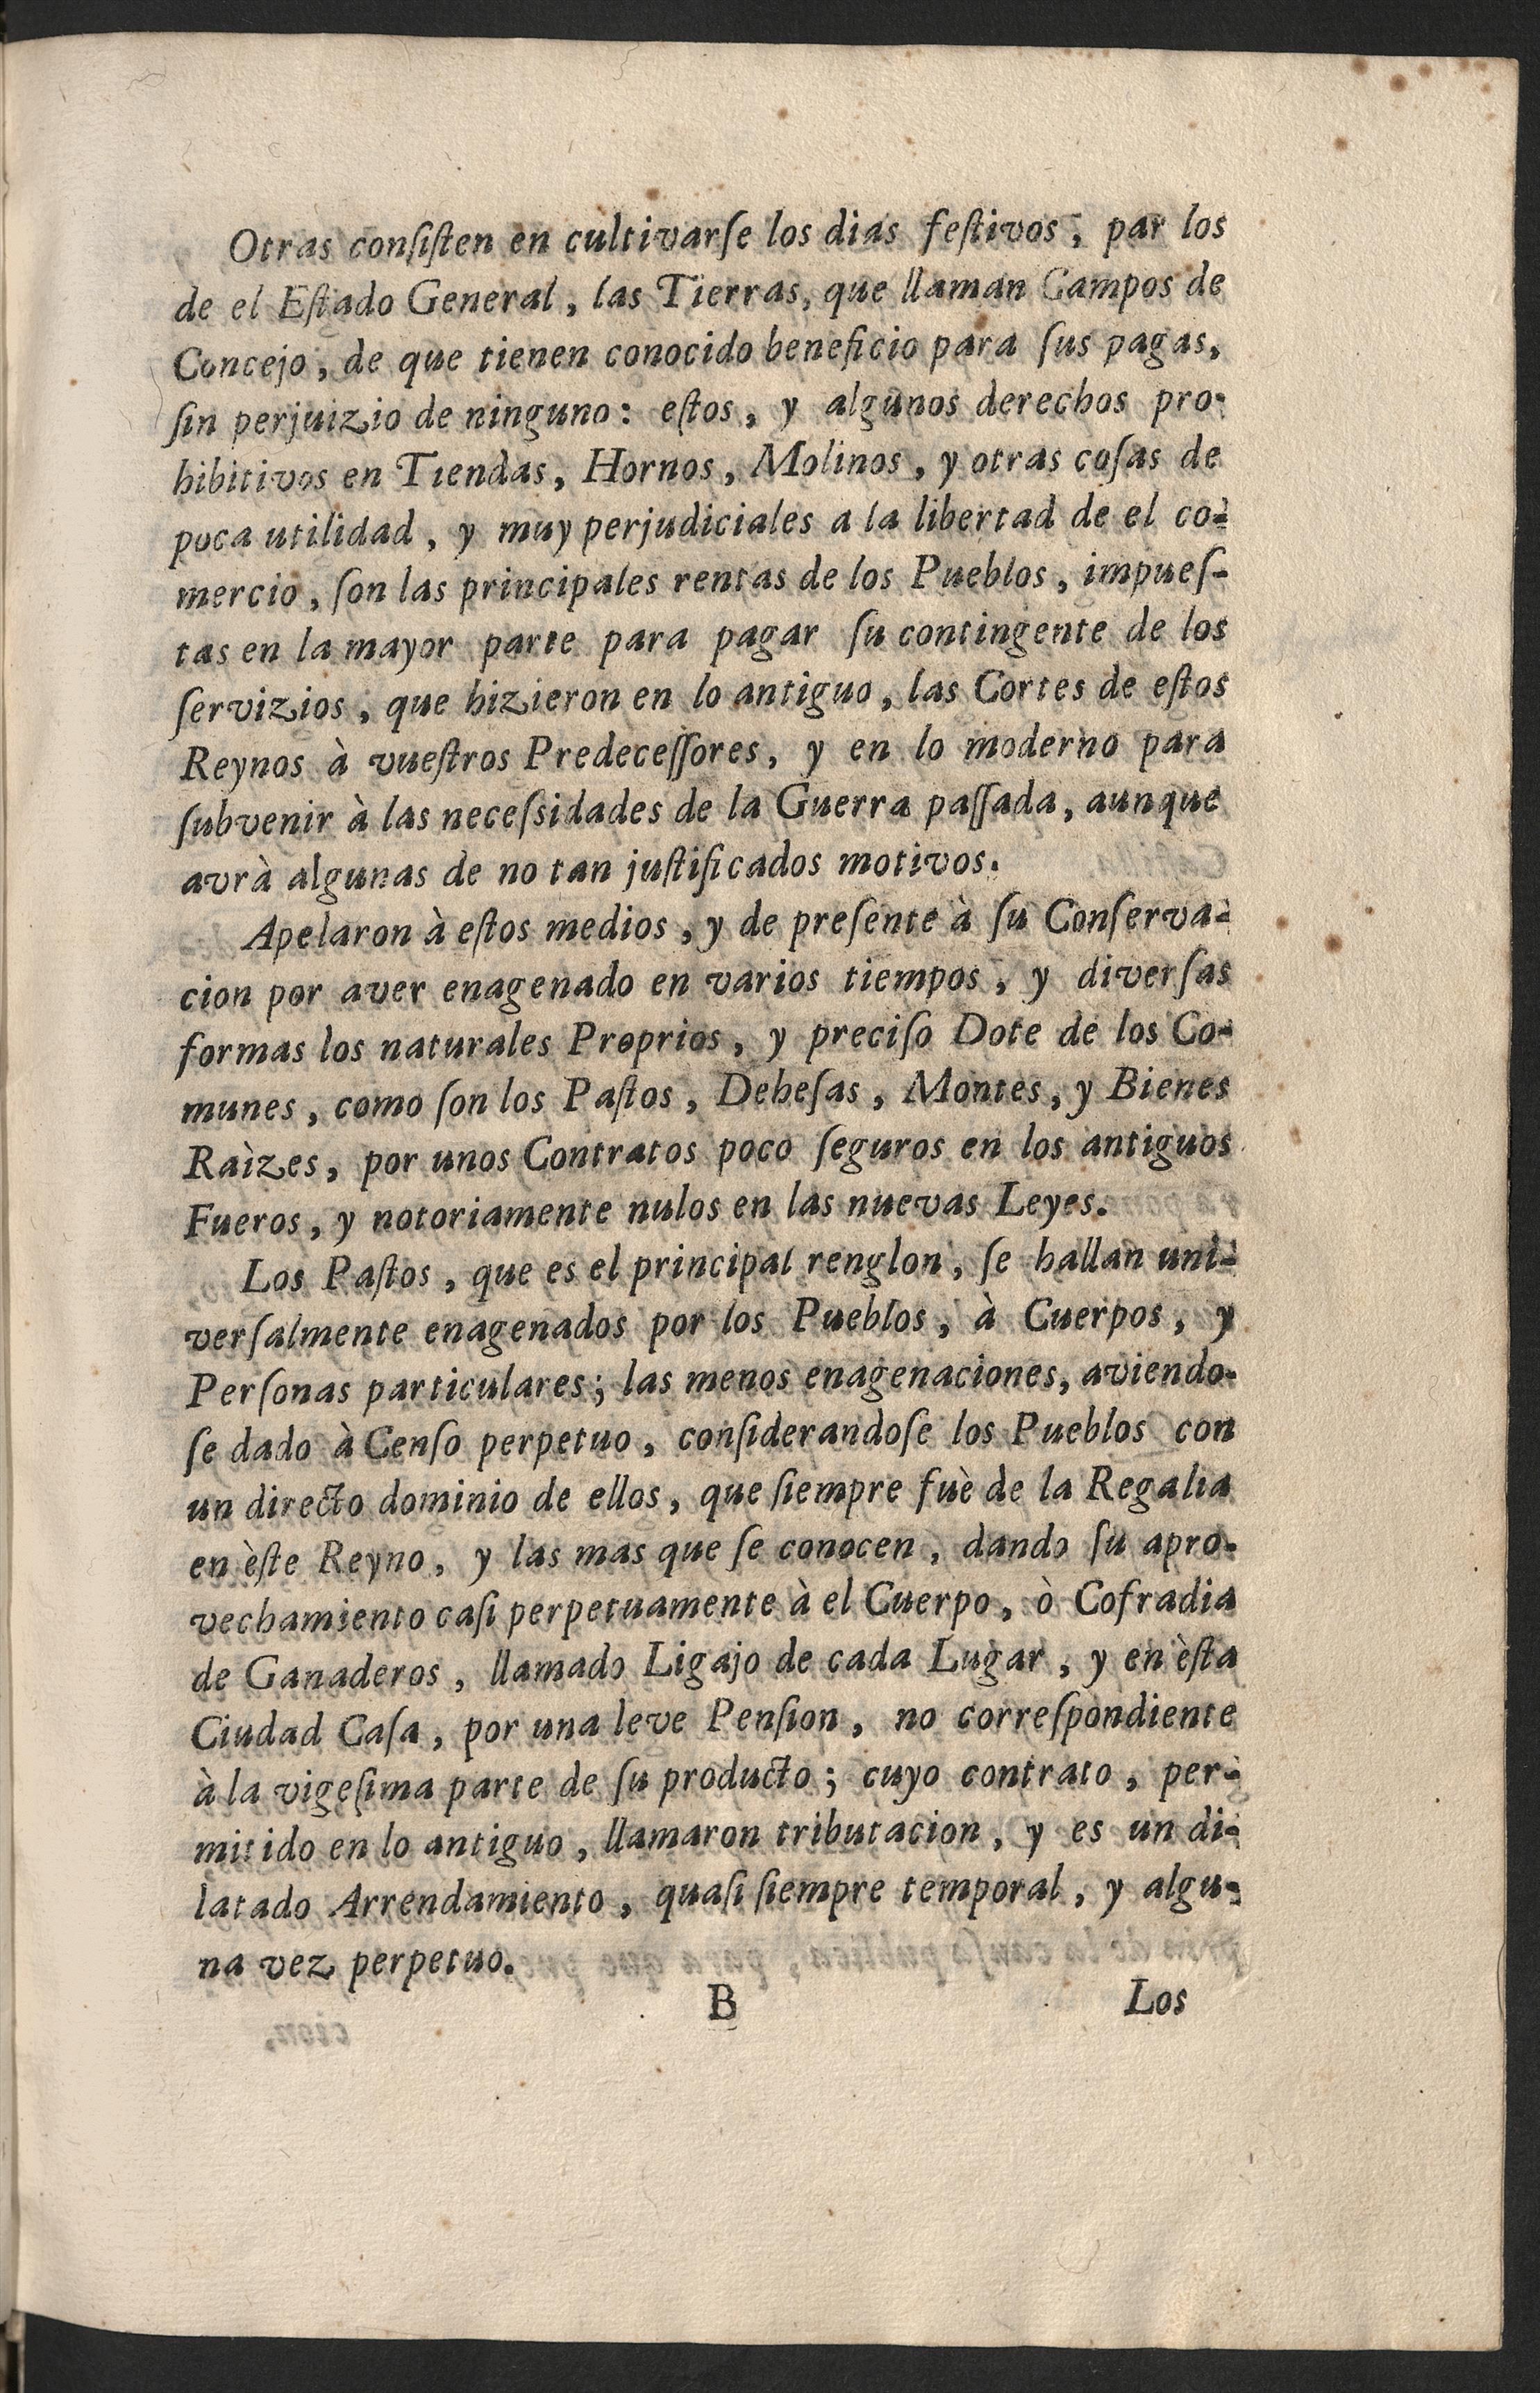 Otras conſiſten en cultivarſe los dias feſtivos, par los
de el Eſtado General, las Tierras, que llaman Campos de
Concejo, de que tienen conocido beneficio para ſus pagas,
ſin perjuizio de ninguno: eſtos, y algunos derechos pro-
hibitivos en Tiendas, Hornos, Molinos, y otras coſas de
poca utilidad, y muy perjudiciales a la libertad de el co-
mercio, ſon las principales rentas de los Pueblos, impueſ-
tas en la mayor parte para pagar ſu contingente de los
ſervizios, que hizieron en lo antiguo, las Cortes de eſtos
Reynos à vueſtros Predeceſſores, y en lo moderno para
ſubvenir à las neceſsidades de la Guerra paſſada, aunque
avrà algunas de no tan juſtificados motivos.
Apelaron à eſtos medios, y de preſente à ſu Conſerva-
cion por aver enagenado en varios tiempos, y diverſas
formas los naturales Proprios, y preciſo Dote de los Co-
munes, como ſon los Paſtos, Deheſas, Montes, y Bienes
Raìzes, por unos Contratos poco ſeguros en los antiguos
Fueros, y notoriamente nulos en las nuevas Leyes.
Los Paſtos, que es el principal renglon, ſe hallan uni-
verſalmente enagenados por los Pueblos, à Cuerpos, y
Perſonas particulares; las menos enagenaciones, aviendo-
ſe dado à Cenſo perpetuo, conſiderandoſe los Pueblos con
un directo dominio de ellos, que ſiempre fuè de la Regalia
en èſte Reyno, y las mas que ſe conocen, dando ſu apro-
vechamiento caſi perpetuamente à el Cuerpo, ò Cofradia
de Ganaderos, llamado Ligajo de cada Lugar, y en èſta
Ciudad Caſa, por una leve Penſion, no correſpondiente
à la vigeſima parte de ſu producto; cuyo contrato, per-
mitido en lo antiguo, llamaron tributacion, y es un di-
latado Arrendamiento, quaſi ſiempre temporal, y algu-
na vez perpetuo.
B Los